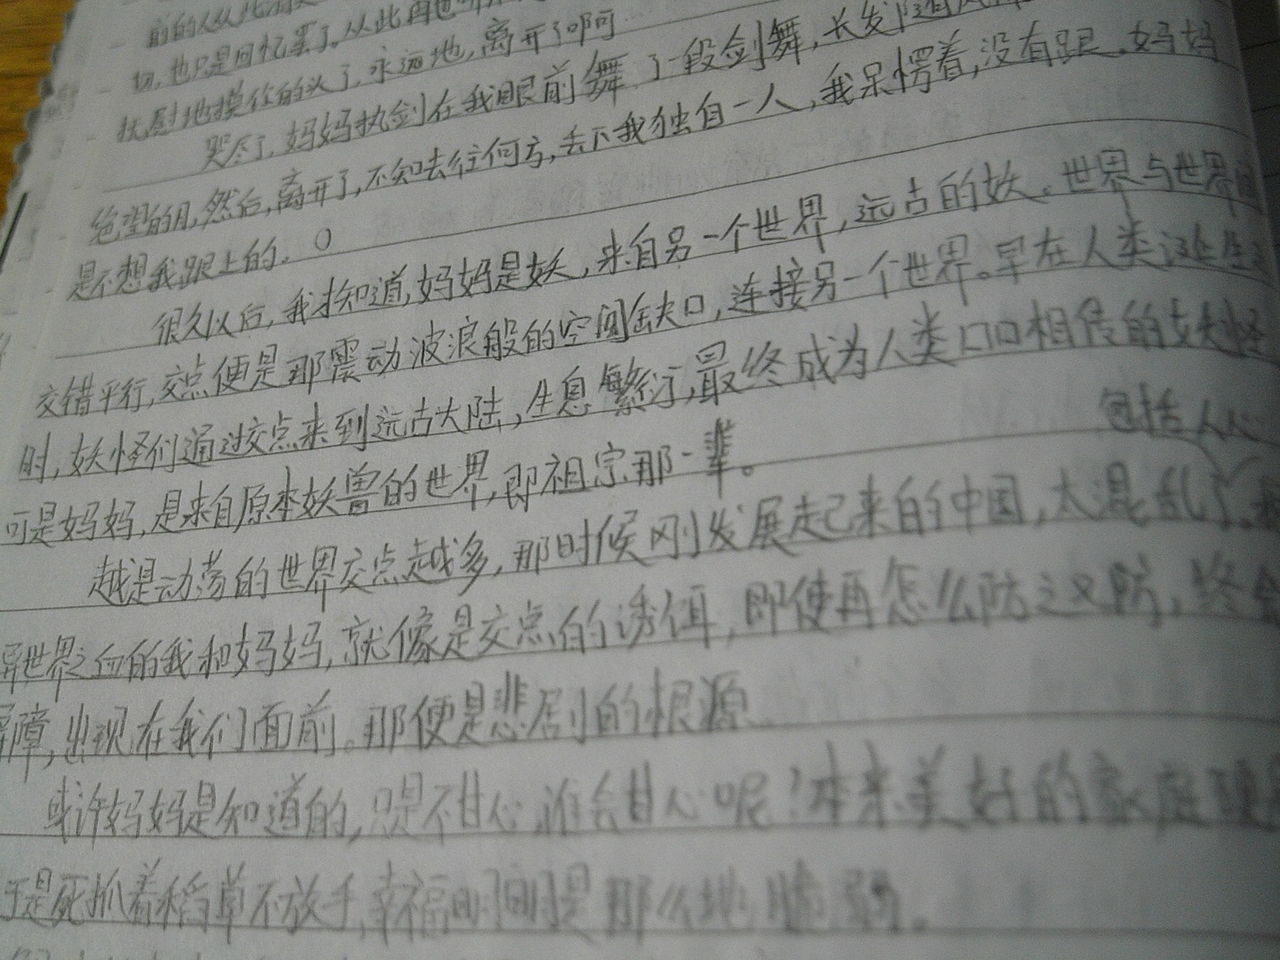 前的人从此消
切,也只是回忆罢了。从此再也
抚慰地摸你的头了,永远地,离开了啊
哭尽了,妈妈执剑在我眼前舞了一段剑舞,长发随风
绝望的月,然后,离开了,不知去往何方,丢下我独自一人,我呆愣着,没有跟。妈妈
是不想我跟上的。
很久以后,我才知道,妈妈是妖,来自另一个世界,远古的妖。世界与世界间
交错平行,交点便是那震动波浪般的空间缺口,连接另一个世界。早在人类诞生之
时,妖怪们通过交点来到远古大陆,生息繁衍,最终成为人类口口相传的妖怪
可是妈妈,是来自原本妖兽的世界,即祖宗那一辈。
包括人心
越是动荡的世界交点越多,那时候刚发展起来的中国,太混乱了。
异世界之血的我和妈妈,就像是交点的诱饵,即使再怎么防之又防,终会
屏障,出现在我们面前。那便是悲剧的根源
或许妈妈是知道的,只是不甘心,谁会甘心呢?本来美好的家庭
于是死抓着稻草不放手,幸福时间是那么地脆弱。